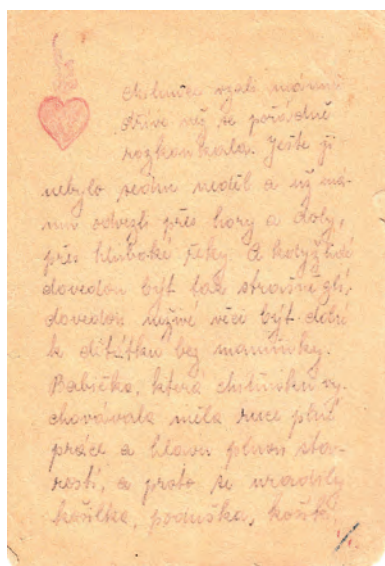 vzali mámu
dříve než se pořádně
rozkoukala. Ještě jí
nebylo sedm neděl a už má-
mu odvezli přes hory a doly,
přes hluboké řeky. A když lidé
dovedou být tak strašně zlí,
dovedou neživé věci být dobré
k děťátku bez maminky.
Babička, která chu vy-
chovávala měla ruce plné
práce a hlavu plnou sta-
rostí, a proto se uradily
košilka, poduška, košík,